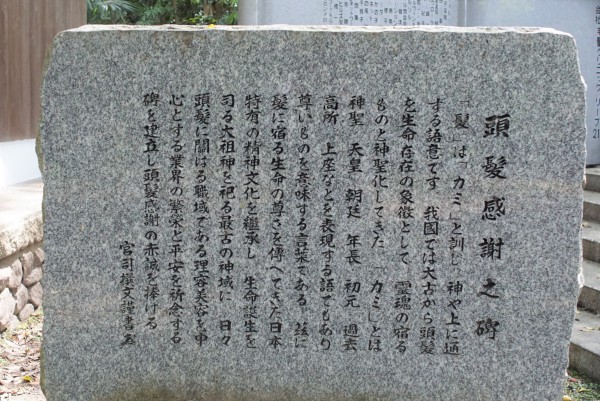 頭髪感謝之碑
「髪」は「カミ」と訓し 神や上に通
する語意です 我國では大古から頭髪
を生命存在の象徴として 霊魂の宿る
ものと神聖化してきた 「カミ」とは
神聖 天皇 朝廷 年長 初元 過去
高所 上座などを表現する語でもあり
尊いものを意味する言葉である 茲に
髪に宿る生命の尊さを傳へてきた日本
特有の精神文化を継承し 生命誕生を
司る大祖神を祀る最古の神域に 日々
頭髪に關はる職域である理容美容を中
心とする業界の繁栄と平安を祈念する
碑を建立し頭髪感謝の赤誠を捧げる
宮司撰文謹書